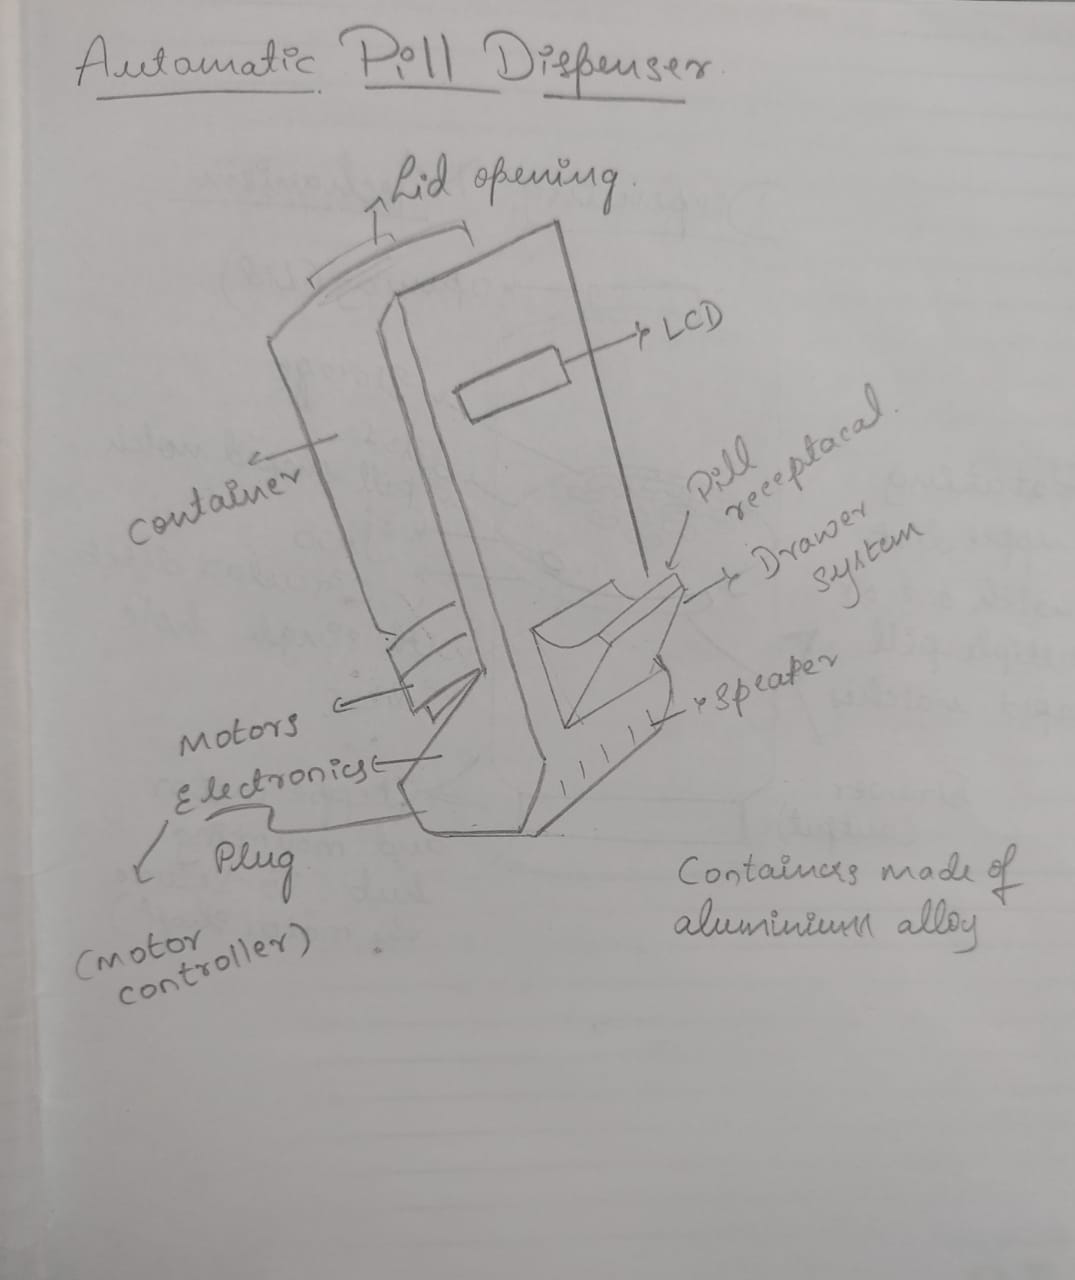 Automatic Pill Dispenser
Lid opening.
LCD
Pill
receptacal.
Container
Drawer
system
Speaker
Motors
Electronics
Plug
(motor
controller)
Containers made of
aluminium alloy